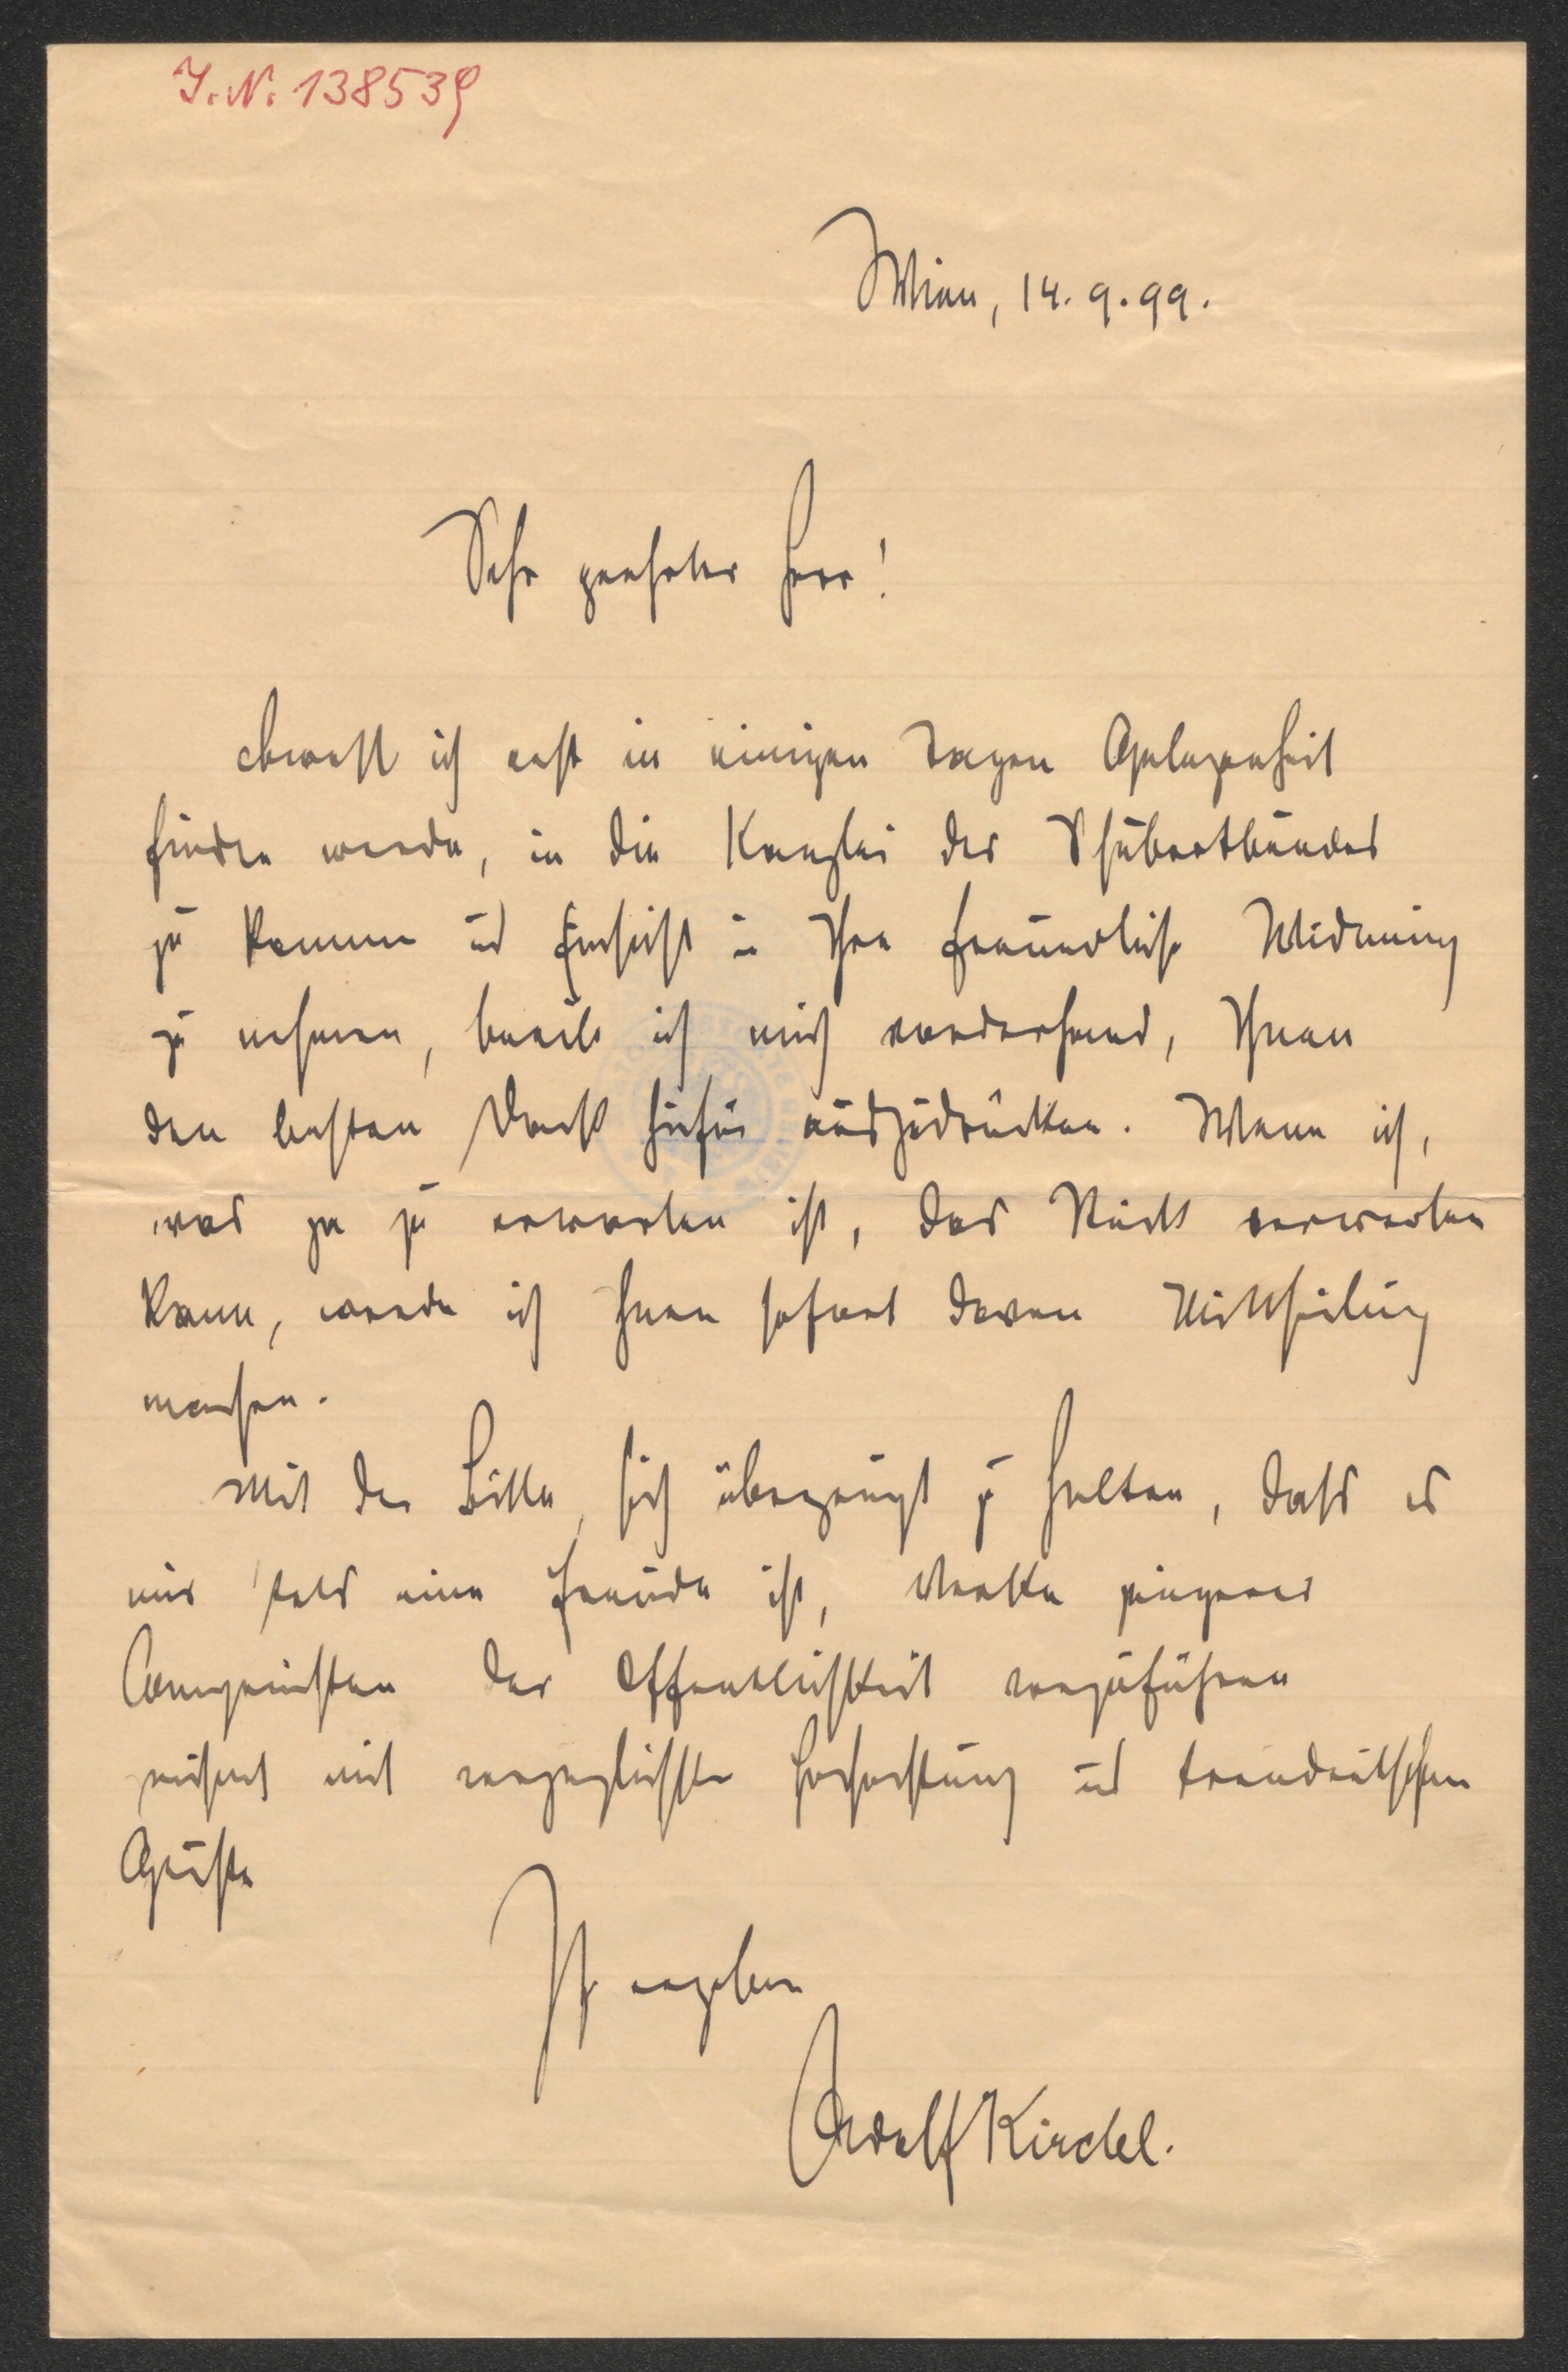 J. N. 138539
Wien, 14. 9. 99.
Sehr geehrter Herr!
obwohl ich erst in einigen Tagen Gelegenheit
finden werde, in die Kanzlei des Schubertbundes
zu kommen und Einsicht in Ihre freundliche Widmung
zu nehmen, beeile ich mich vorderhand, Ihnen
den besten Dank hiefür auszudrücken. Wenn ich,
was ja zu erwarten ist, das Stück verwerten
kann, werde ich Ihnen sofort davon Mittheilung
machen.
Mit der Bitte, sich überzeugt zu halten, dass es
mir stets eine Freude ist, Werke jüngerer
Componisten der Öffentlichkeit vorzuführen
zeichnet mit vorzüglichster Hochachtung und treudeutschem
Gruße
Ihr ergebener
Adolf Kirchl.